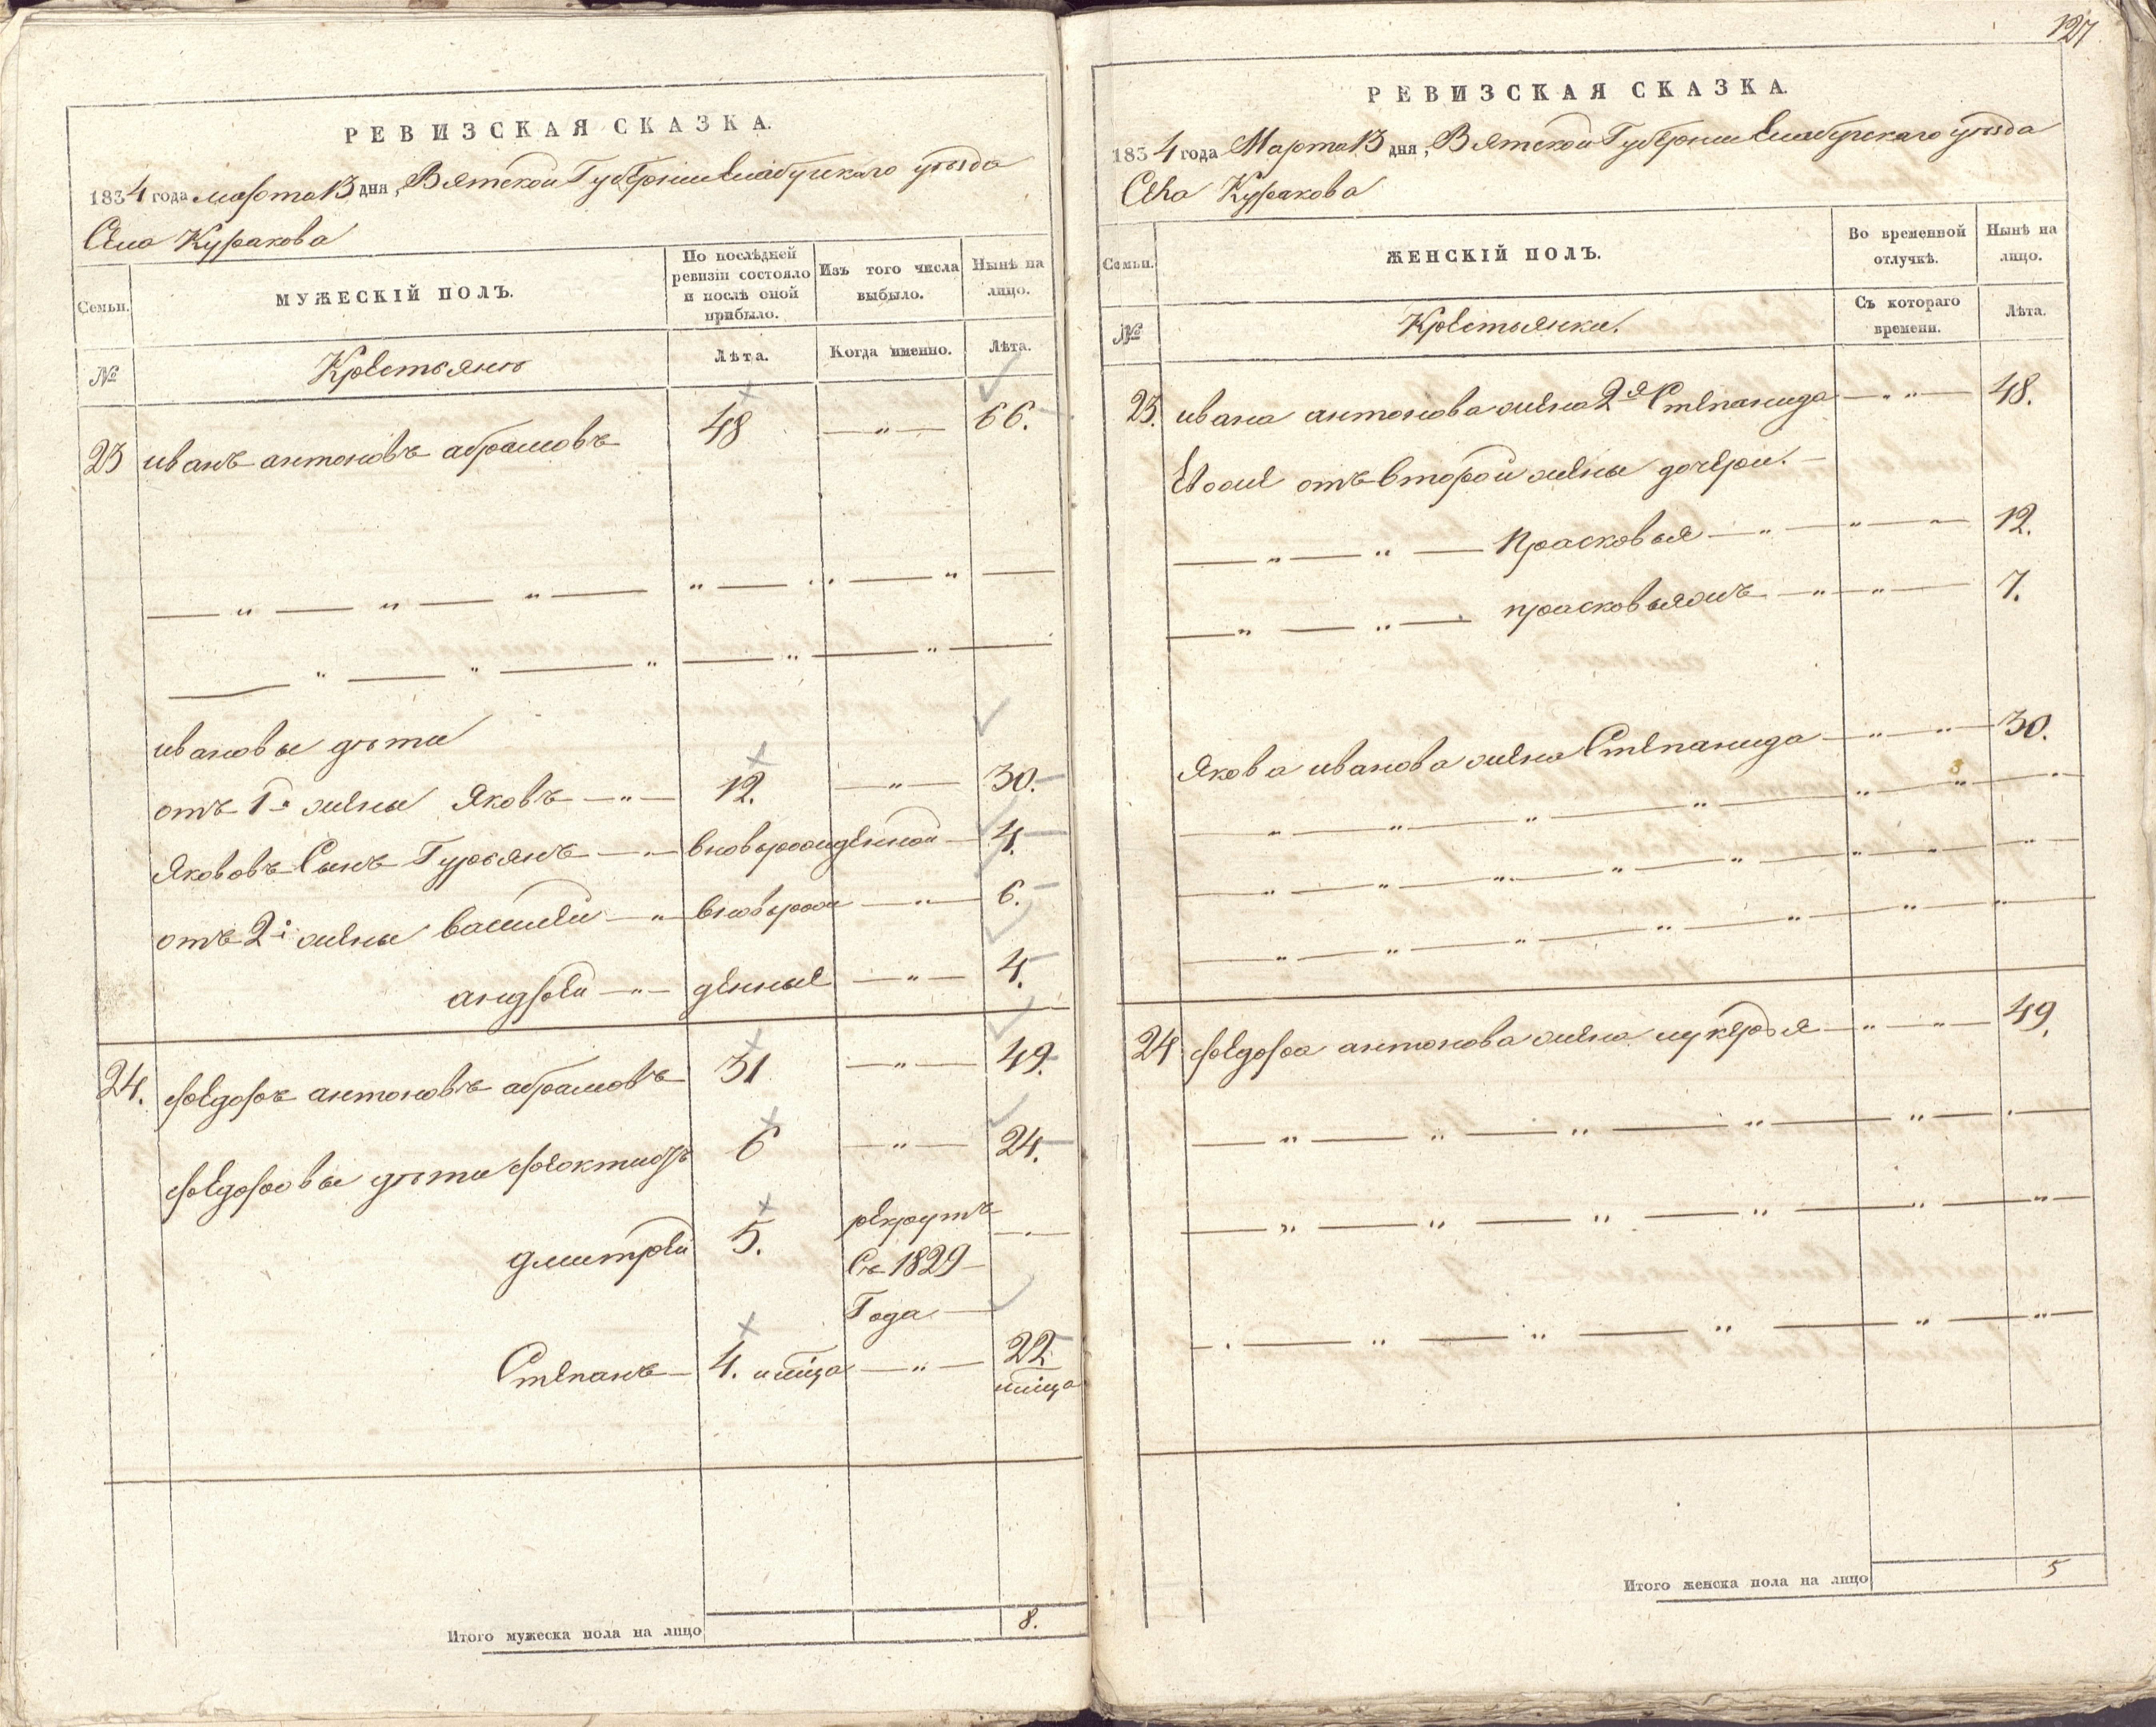 РЕВИЗСКАЯ СКАЗКА.
1834 года марта 13 дня, Вятской Губерніи Елабугскаго уѣзда
Села Куракова
Семьи.
МУЖЕСКІЙ ПОЛЪ.
По послѣдней ревизіи состояло и послѣ оной прибыло.
Изъ того числа выбыло.
Нынѣ на лицо.
№
Крестьянъ
Лѣта.
Когда именно.
Лѣта.
23 иванъ антоновъ абрамовъ 48 — " — 66.
ивановы дѣти
отъ 1й жены Яковъ — " — 12. — " — 30.
Якововъ Сынъ Гурьянъ — вновьрожденной — 4.
отъ 2й жены василей — " — вновьрож — " — 6.
андрей — " — денные — " — 4.
24. федоръ антоновъ абрамовъ 31 — " — 49.
федоровы дѣти феоктистъ 6 — " — 24.
дмитрей 5. рекрутъ
Съ 1829
Года
Степанъ — 4. — " — 22
Итого мужеска пола на лицо 8.
127
РЕВИЗСКАЯ СКАЗКА.
1834 года Марта 13 дня, Вятской Губерніи Елабугскаго уѣзда
Села Куракова
Семьи.
ЖЕНСКІЙ ПОЛЪ.
Во временной отлучкѣ.
Нынѣ на лицо.
№
Крестьянки.
Съ котораго времени.
Лѣта.
23. ивана антонова жена 2я Степанида — " — 48.
Евоже отъ второй жены дочери. —
— " — " — Прасковья — " — " — 12.
— " — " — прасковьяжъ — " — " — 7.
Якова иванова жена Степанида — " — " — 30.
24 федора антонова жена лукерья — " — " — 49.
Итого женска пола на лицо 5